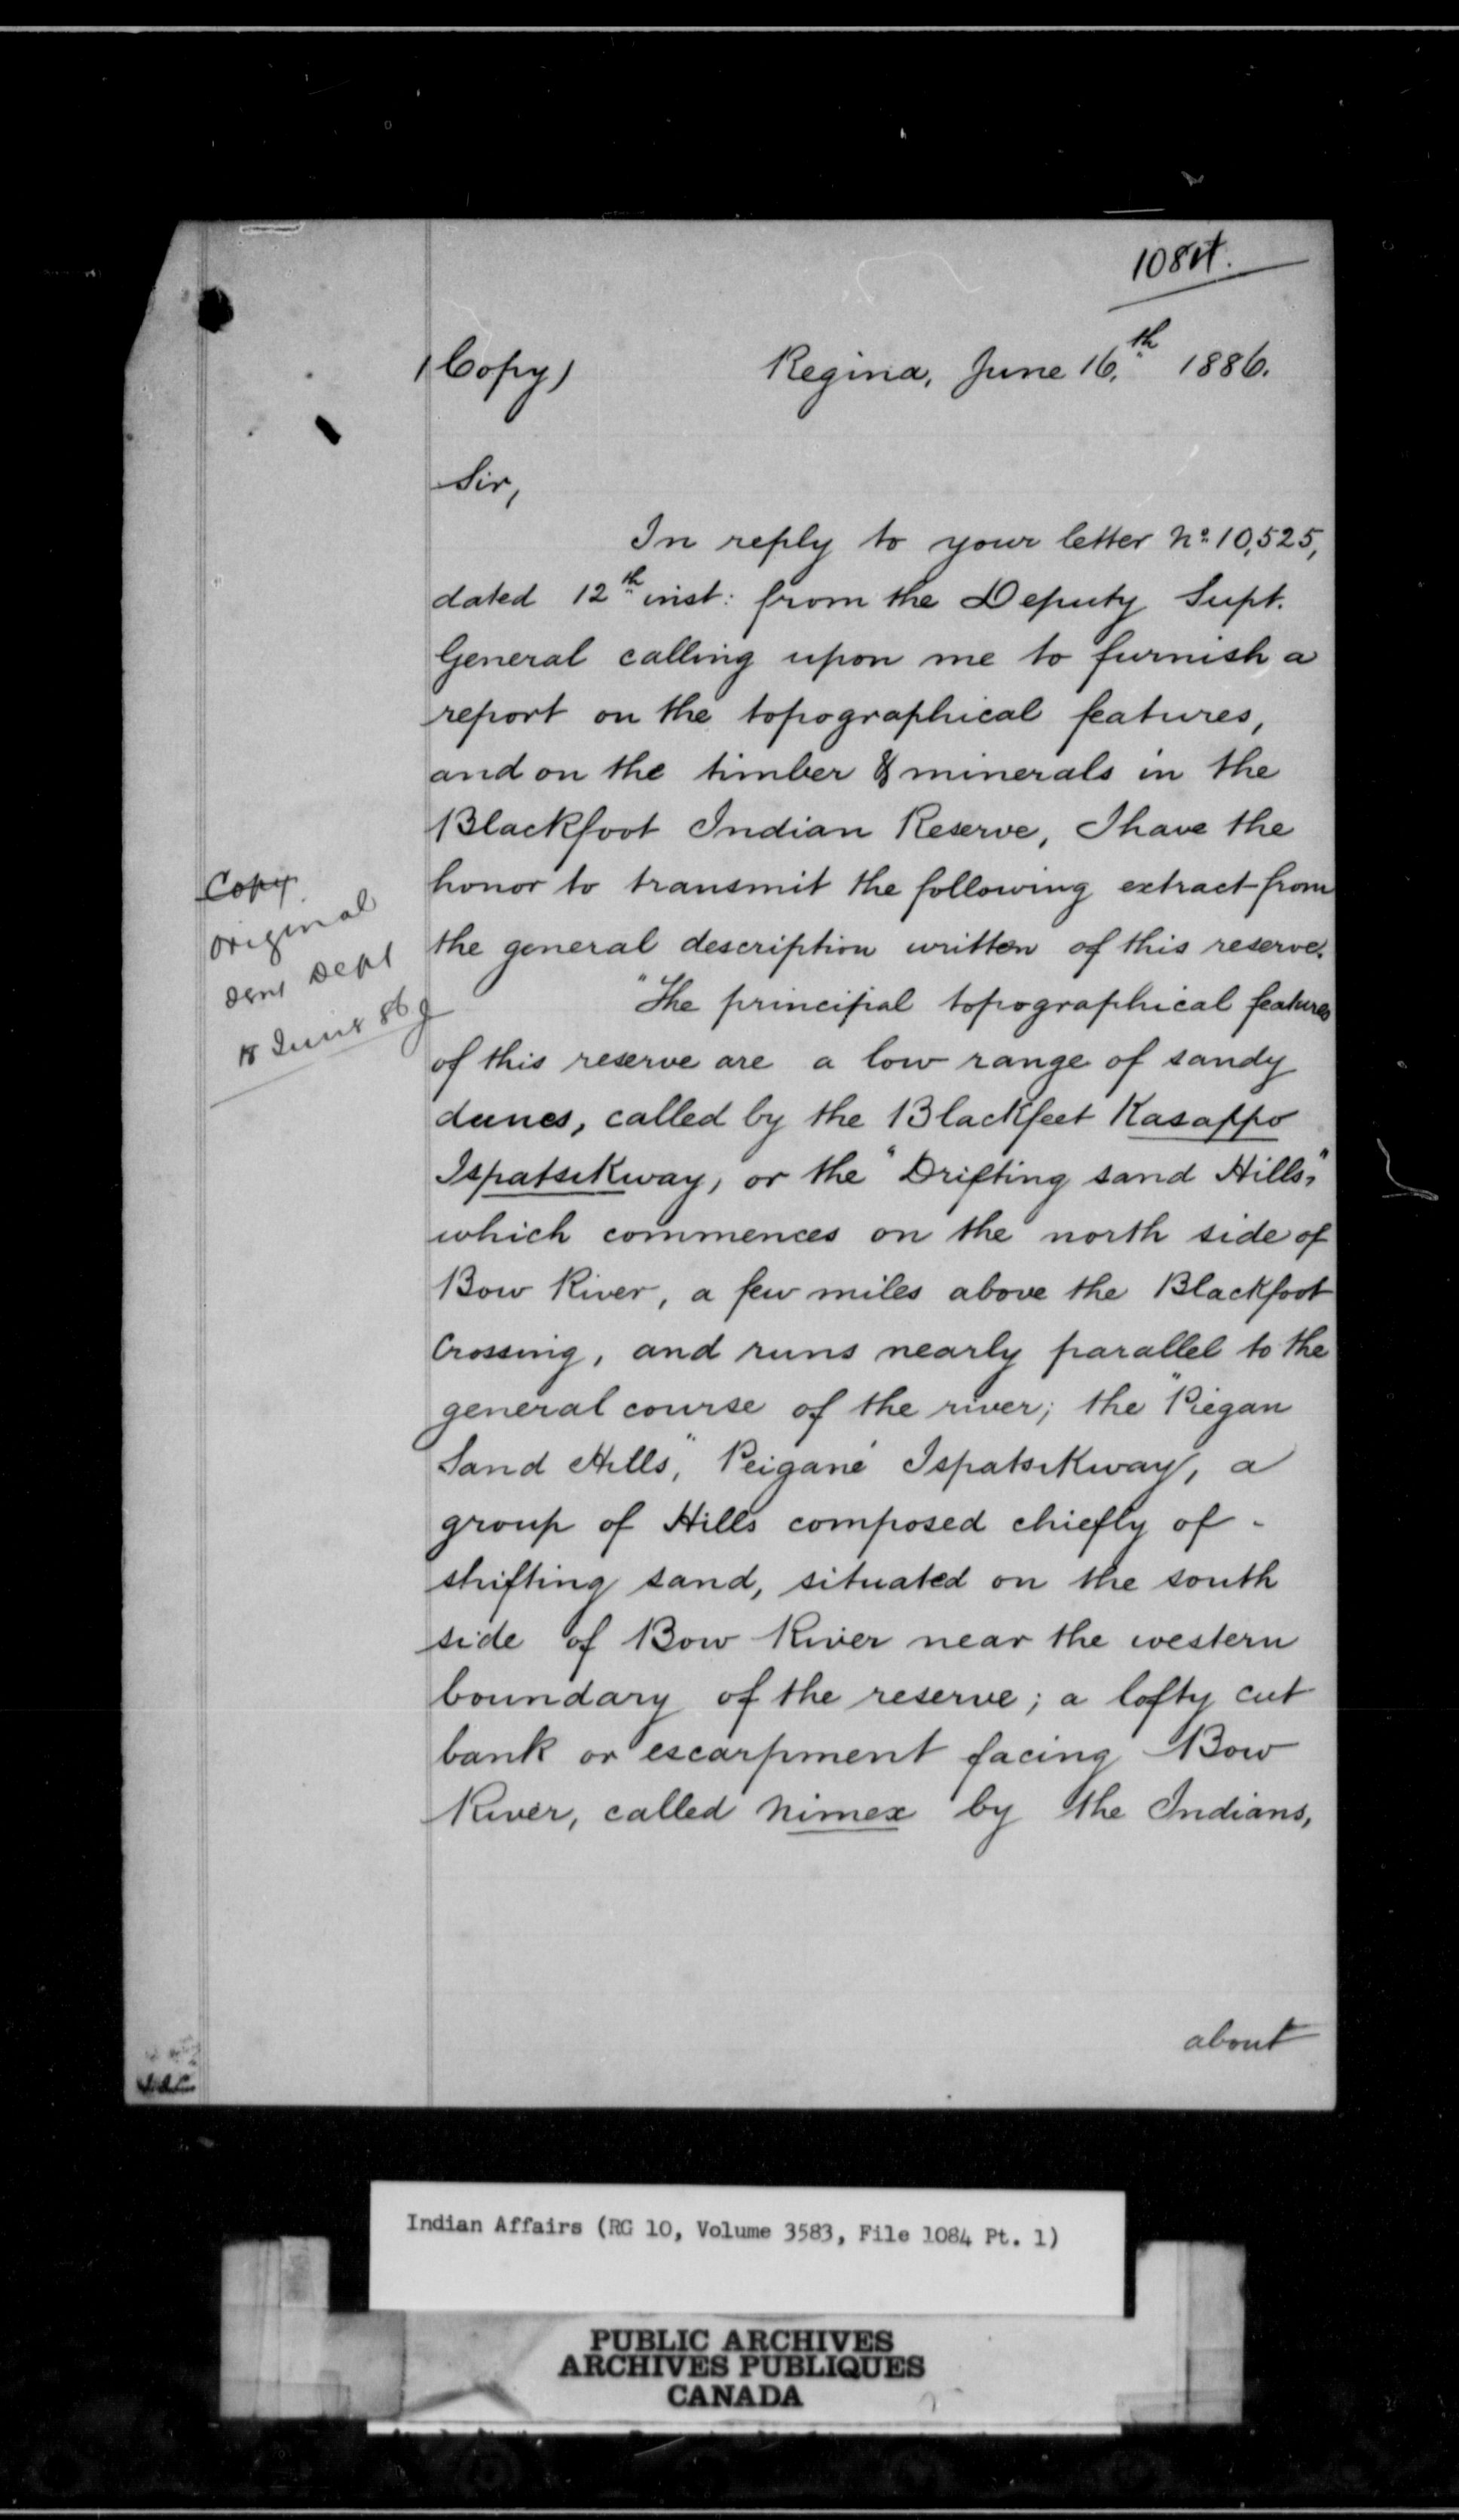 1084.
(Copy) Regina, June 16.th 1886.
Sir,
In reply to your letter No. 10,525,
dated 12th inst: from the Deputy Supt.
General calling upon me to furnish a
report on the topographical features,
and on the timber & minerals in the
Blackfoot Indian Reserve, I have the
honor to transmit the following extract from
the general description written of this reserve.
"The principal topographical features
of this reserve are a low range of sandy
dunes, called by the Blackfeet Kasappo
Ispatsikway, or the "Drifting sand Hills,"
which commences on the north side of
Bow River, a few miles above the Blackfoot
Crossing, and runs nearly parallel to the
general course of the river; the "Piegan
Sand Hills," Peigane Ispatsikway, a
group of Hills composed chiefly of -
shifting sand, situated on the south
side of Bow River near the western
boundary of the reserve; a lofty cut
bank or escarpment facing Bow
River, called Nimex by the Indians,
about
Copy
Original
Dept
18 June 86
Indian Affairs (RG 10, Volume 3583, File 1084 Pt. 1)
PUBLIC ARCHIVES
ARCHIVES PUBLIQUES
CANADA